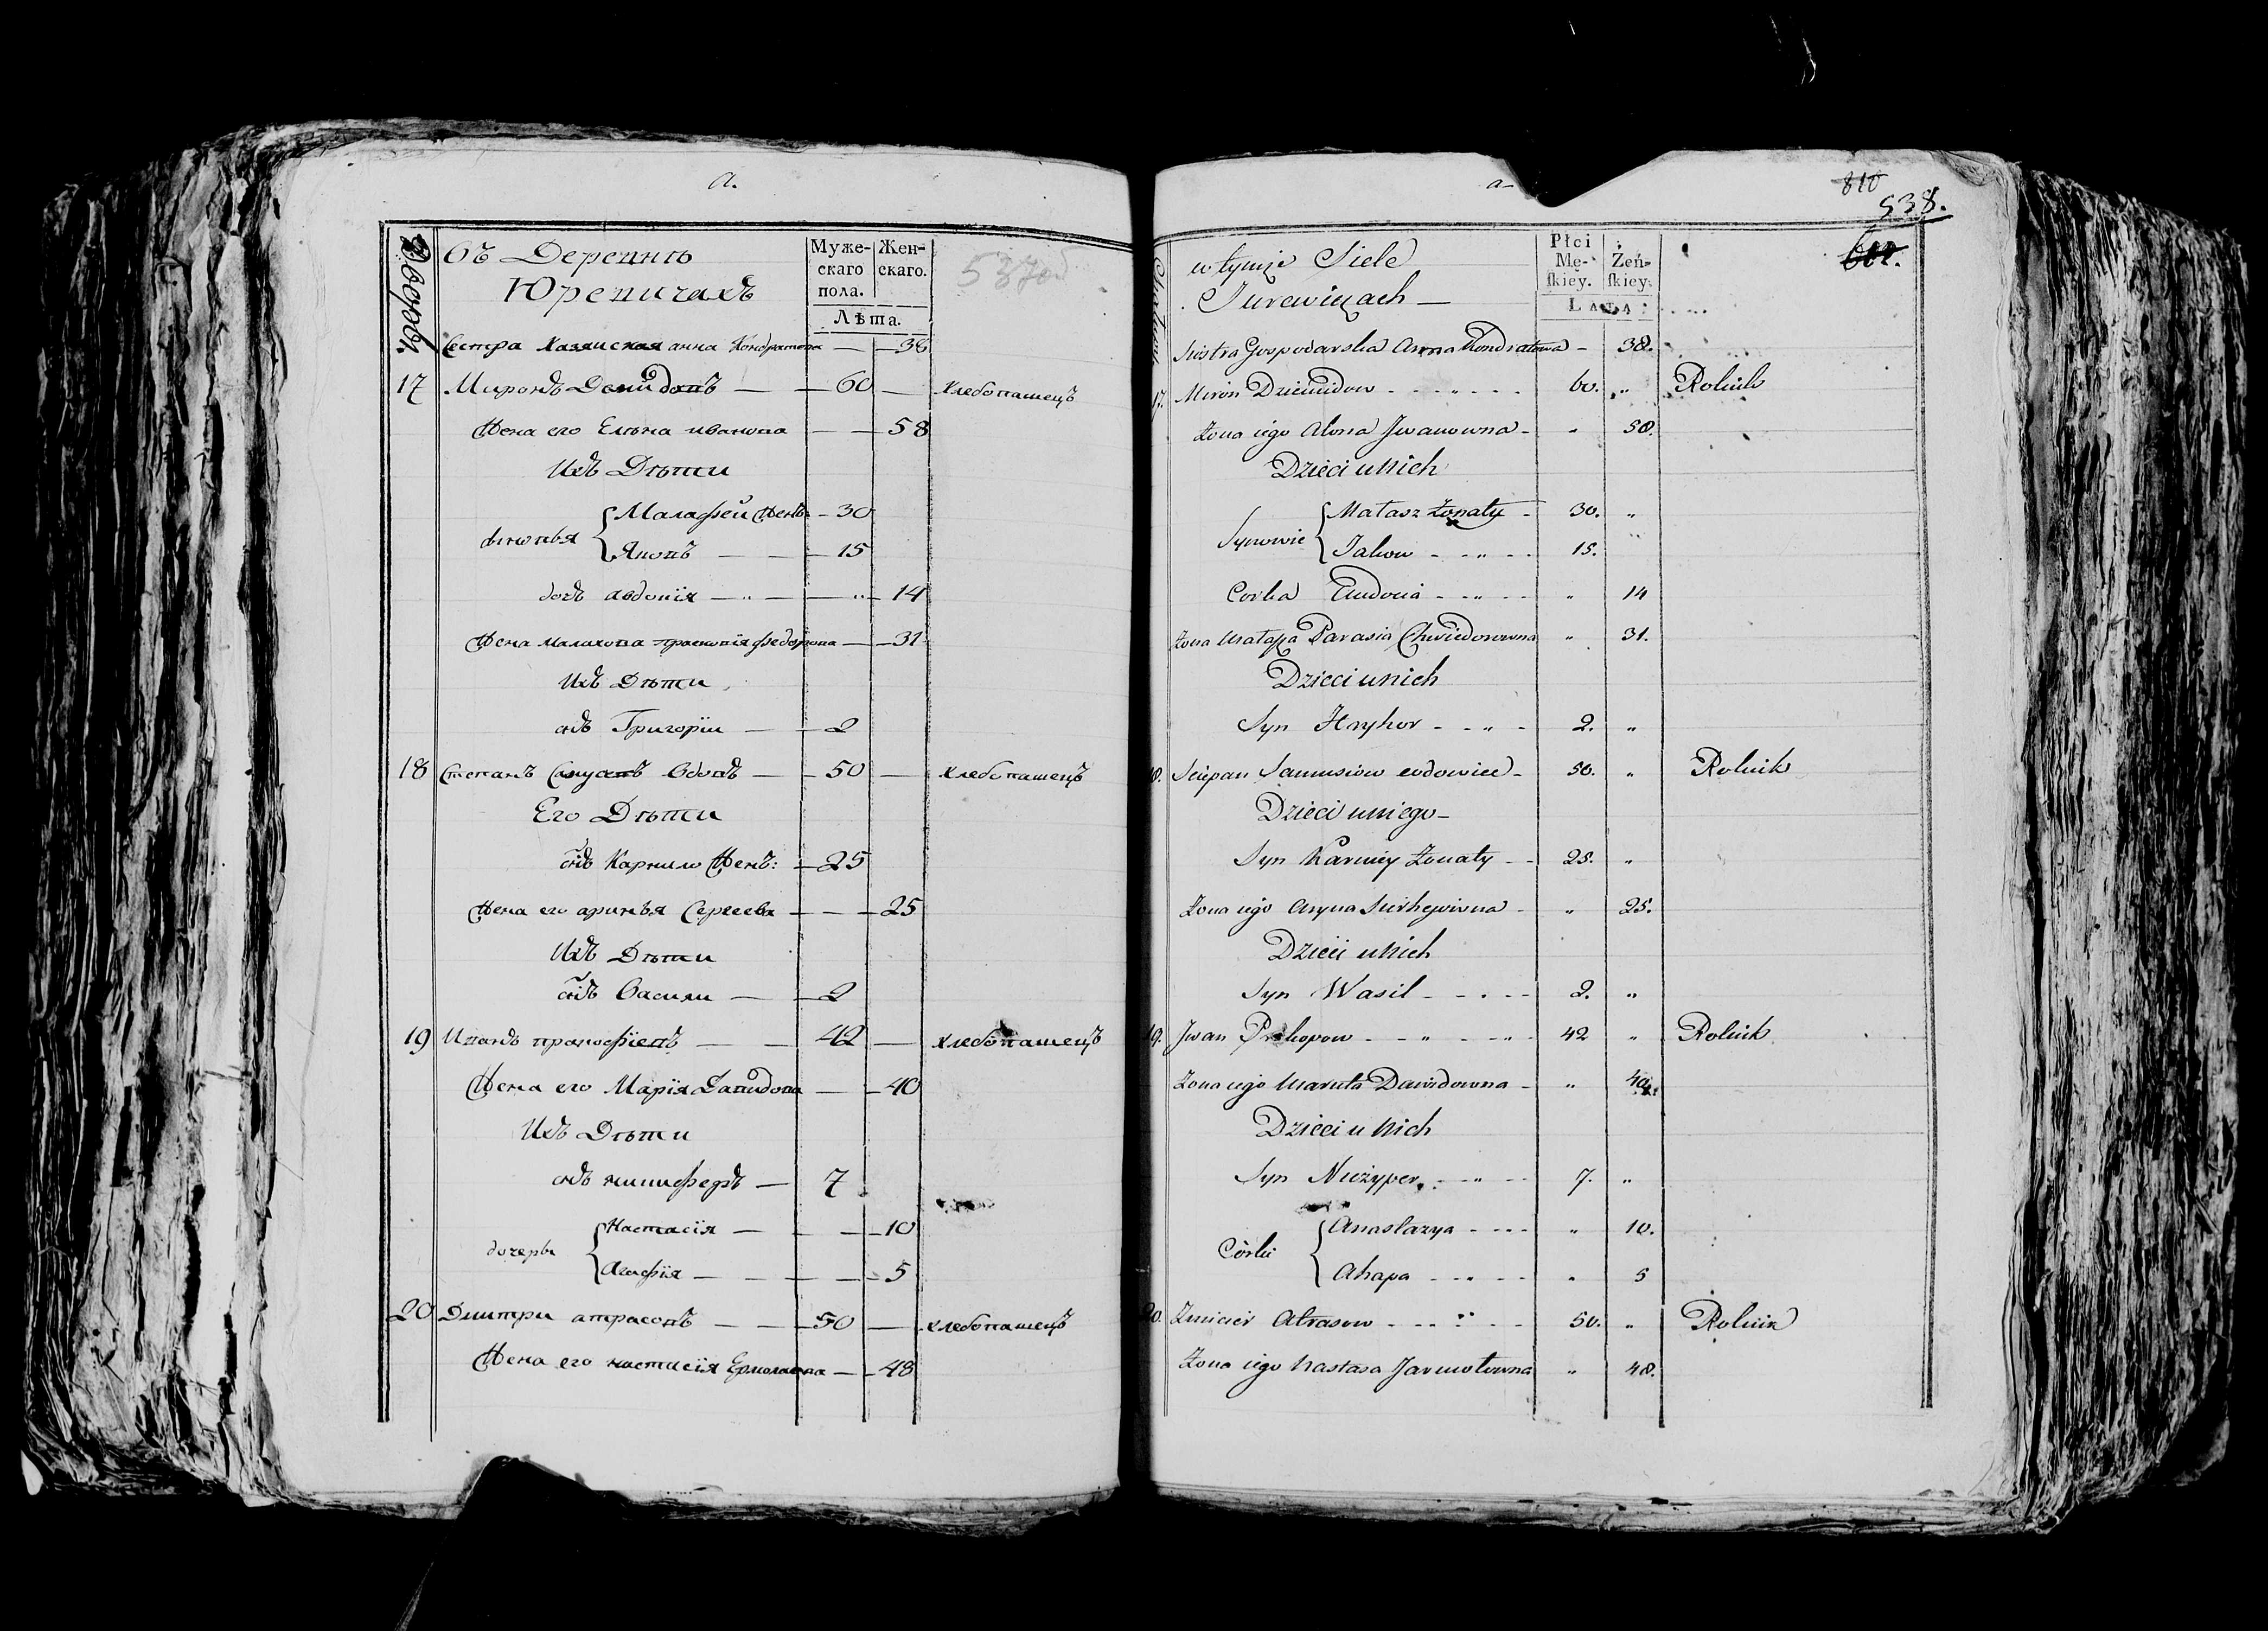 a.
537об
Дворовъ.
Въ Деревнѣ
Юревичахъ
Муже-
скаго
пола.
Жен-
скаго.
Лѣта.
Сестра Хазяйская анна Кондратова — — 38
17 Миронъ Демидовъ — — 60 — Хлебопашецъ
Жена его Елѣна иванова — — 58
Ихъ Дѣти
сыновья { Малафей Женъ: — 30
Яковъ — — — 15
дочь авдокія — „ — — „ — 14
Жена малахова прасковія федорова — — 31
Ихъ Дѣти
снъ Григорій — — 2
18 Степанъ Самусевъ вдовъ — — 50 — хлебопашецъ
Его Дѣти
снъ Карнило Женъ: — 25
Жена его аринья Сергеева — — — 25
Ихъ Дѣти
снъ Васили — — 2
19 Иванъ прокофіевъ — — 42 — хлебопашецъ
Жена его Марія Давидова — — 40
Ихъ Дѣти
снъ никифоръ — 7
дочерьи { Настасія — — — 10
Агафія — — — — 5
20 Дмитри атрасовъ — — 50 — хлебопашецъ
Жена его настасія Ермолаева — — 48
a-
810
538.
w tymże Siele
Jurewiczach —
Płci
Mę-
skiey.
Żeń-
skiey.
Lata
Siostra Gospodarska Anna Kondratowa - 38.
17. Miron Dziemidow - - - „ - - - 60. „ Rolnik
Żona iego Alona Jwanowna - „ 58.
Dzieci u Nich
Synowie { Matasz Żonaty - 30. „
Jakow - - „ - - 15. „
Corka Eudocia - - „ - - „ 14
Żona Matasza Parasia Chwiedorowna „ 31.
Dzieci u nich
Syn Hryhor - - „ - 2. „
18. Sciepan Samusiow wdowiec - 50. „ Rolnik
Dzieci u niego -
Syn Karniey Żonaty - - 25. „
Żona iego Aryna Sierhejewna - „ 25.
Dzieci u Nich
Syn Wasil - - - - 2. „
19. Jwan Prokopow - - „ - - „ - 42 „ Rolnik
Żona iego Maruta Dawidowna - „ 40.
Dzieci u Nich
Syn Niczyper - - „ - - 7. „
Córki { Anastazya - - - - „ 10.
Ahapa - - „ - - „ 5
20. Zmicier Atrasow - - - „ - - 50. „ Rolnik
Żona iego Nastasa Jarmołowna „ 48.